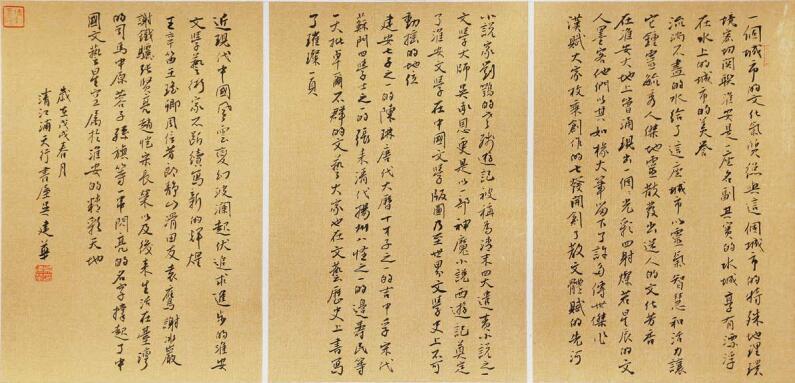 一個城市的文化氣質總與這個城市的特殊地理環
境密切關聯淮安是一座名副其實的水城享有漂浮
在水上的城市的美譽
流淌不盡的水給了這座城市以靈氣智慧和活力讓
它鍾靈毓秀人傑地靈散發出迷人的文化芳香
在淮安大地上曾涌現出一個個光彩四射燦若星辰的文
人墨客他們以其如椽大筆留下了許多傳世傑作
漢賦大家枚乘創作的七發開創了散文體賦的先河
小說家劉鶚的老殘遊記被稱為清末四大遣責小說之一
文學大師吳承恩更是以一部神魔小說西遊記奠定
了淮安文學在中國文學版圖乃至世界文學史上不可
動搖的地位
建安七子之一的陳琳唐代大曆十才子之一的吉中孚宋代
蘇門四學士之一的張耒清代揚州八怪之一的邊壽民等
一大批卓爾不群的文藝大家也在文藝歷史上書寫
了璀璨一頁
近現代中國風雲變幻波瀾起伏追求進步的淮安
文學藝術家不斷續寫新的輝煌
王辛笛王瑤卿周信芳郎靜山滑田友袁鷹謝冰巖
謝鐵驪張賢亮趙愷宋長榮以及後來生活在臺灣
的司馬中原蓉子孫旗等一串閃亮的名字撐起了中
國文藝星空屬於淮安的精彩天地
歲在戊戌春月
清江浦天行書屋吳建華